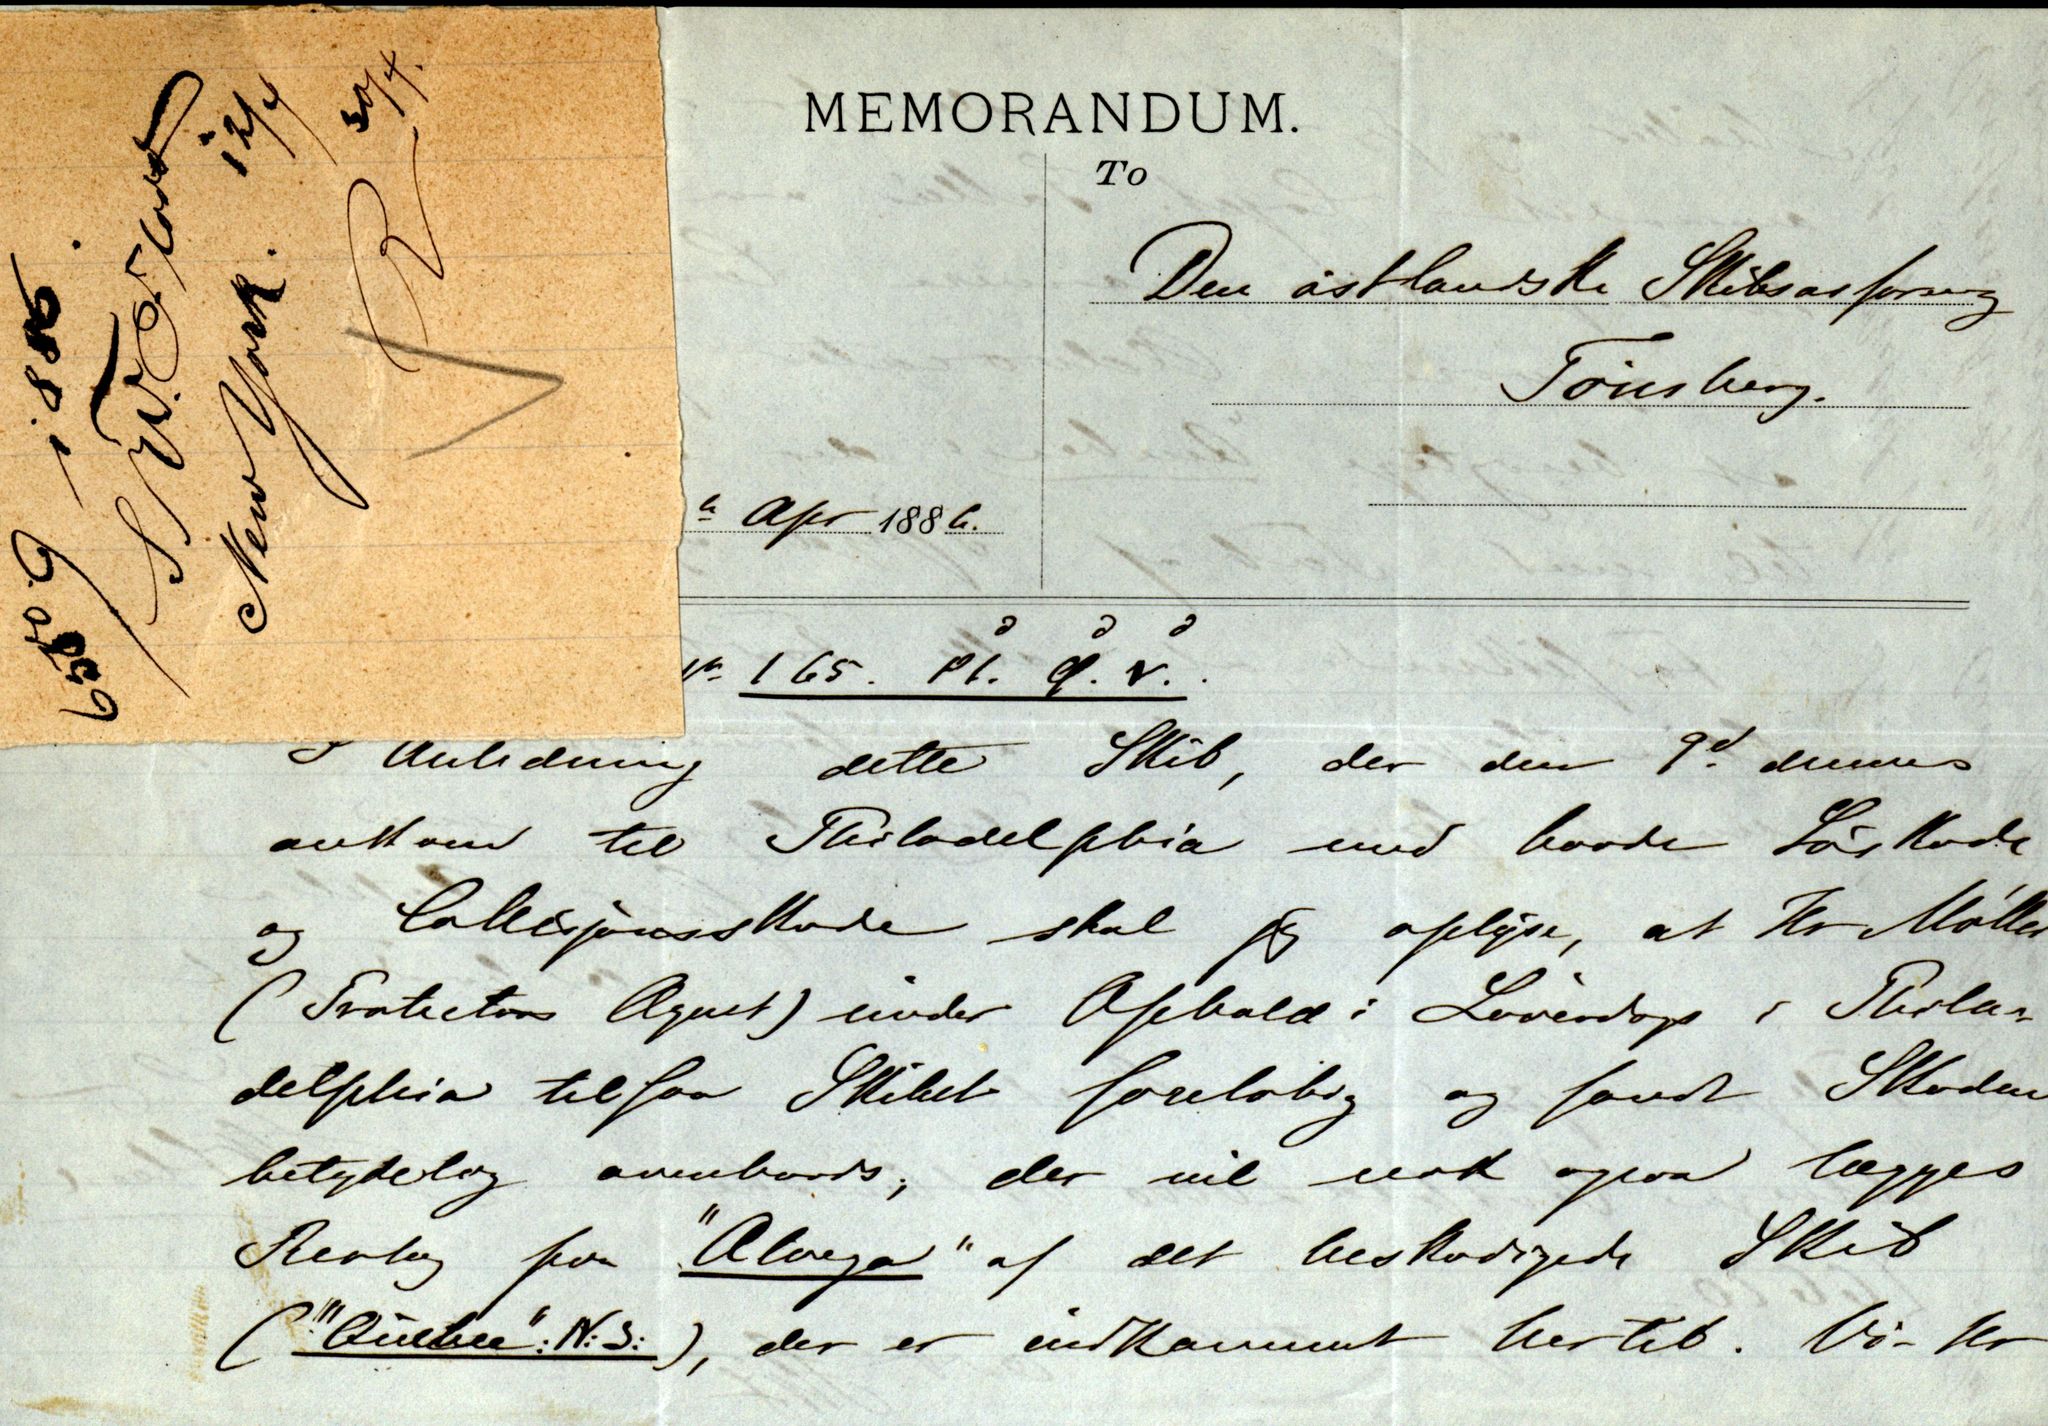 6580.9 1886.
S. W. Flood
New York. 12/4
R 30/4.
MEMORANDUM.
To
Den østlandske Skibsasforeng
Tønsberg.
Apr 1886.
165. Pl. q. v.
I Anledning dette Skib, der den 9d dennes
ankom til Philadelphia med baade Søskade
og Collisjonsskade skal jeg oplyse, at Hr Møller
(Protectors Agent) under Ophold i Løverdags i Phila-
delphia tilsaa Skibet foreløbig og fandt Skaden
betydelig ovenbords; der vil nok ogsaa lægges
Beslag paa "Alvega" af det beskadigede Skib
("Quebec": N: S:), der er indkommet hertil. Vi - Hr